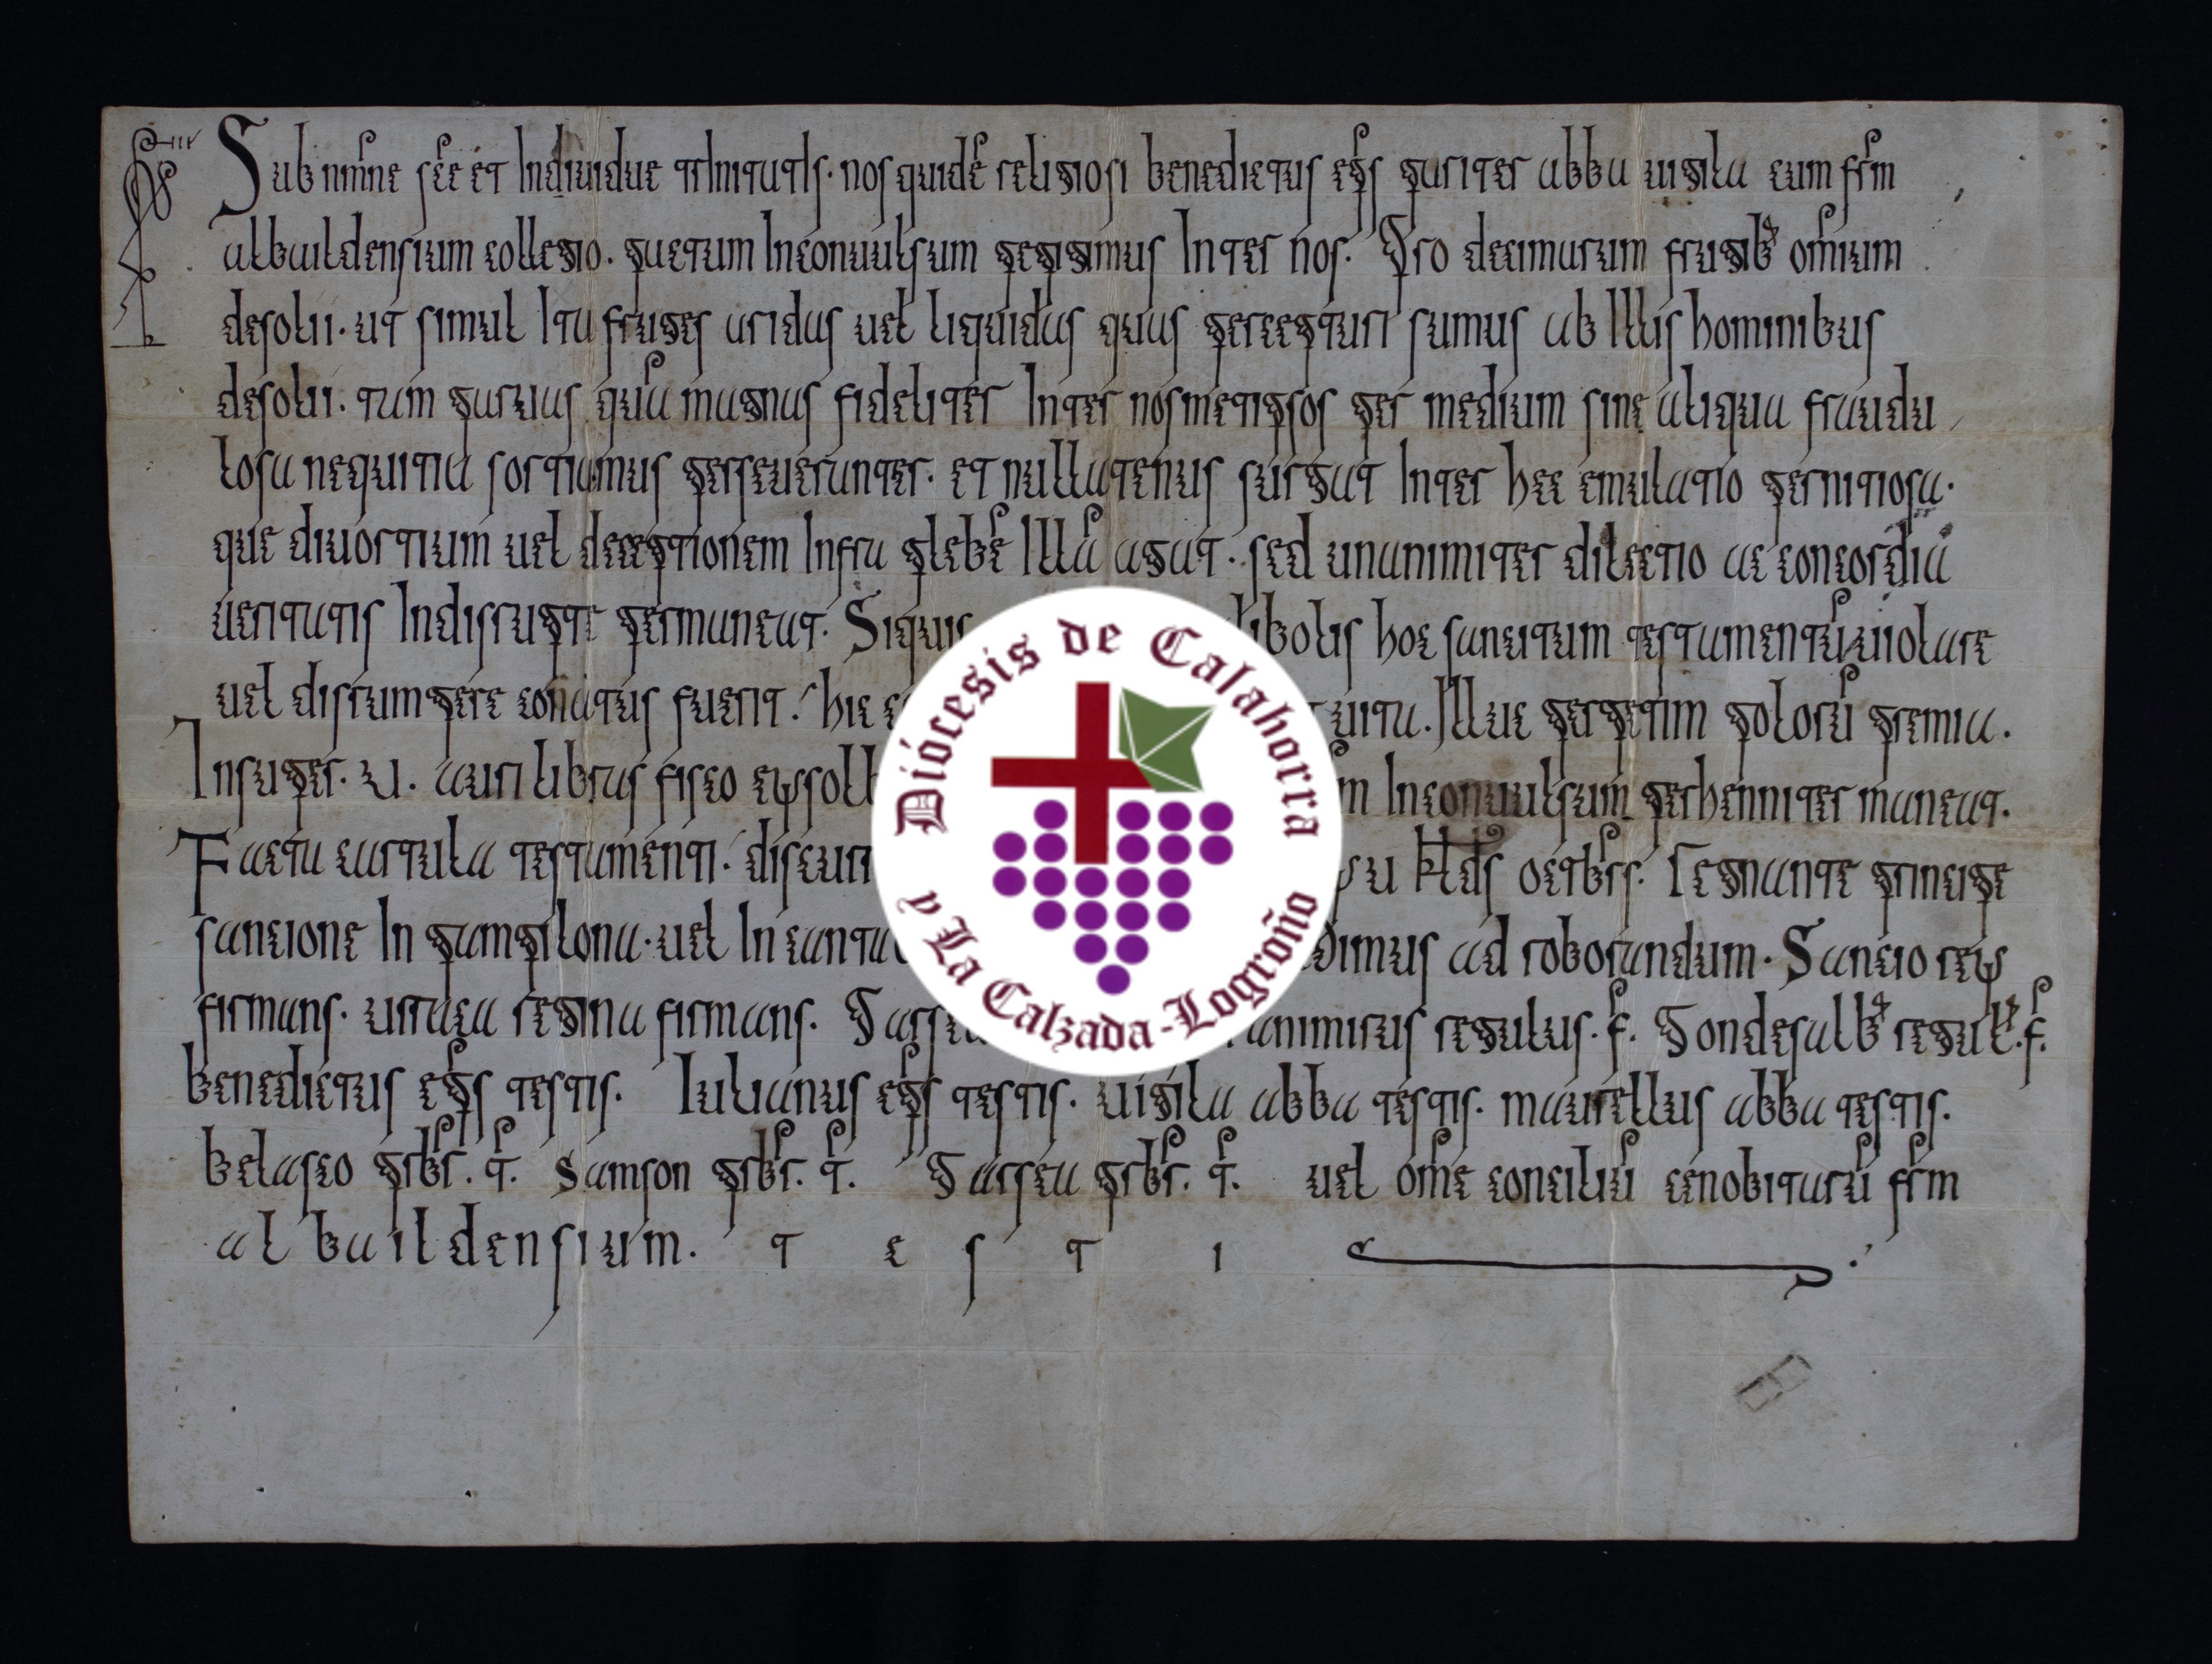 Sub nm̅ne sc̅e et Indiuidue trInitatIs. nos quide̅ religiosi benedictus ep̅s pariter abba uigila cum fr̅m
albaildensium collegio. pactum Inconuulsum pepigimus Inter nos. Pro decimarum frugib; om̅ium
desolii. ut simul Ita fruges aridas uel liquidas quas percepturi sumus ab Illis hominibus
desolii. tam paruas qua̅ magnas fideliter Inter nosmetipsos per medium sine aliqua fraudu
losa nequitia sortiamus perseueranter. et nullatenus surgat Inter hec emulatio pernitiosa.
que diuortium uel deceptionem Infra plebe̅ Illa̅ agat. sed unanimiter dilectio ac concordia
ueritatis Indisrupte permaneat. Siquis libolis hoc sancitum testamentu̅ uiolare
uel disrumpere conatus fuerit. hic uita. Illuc perpetim poloru̅ premia.
Insuper. U. auri libras fisco m Inconuulsum perhenniter maneat.
Facta cartula testamenti. Klds octbrs. regnante principe
sancione In pampilona. uel In ad roborandum. Sancio rex
firmans. urraca regina firmans. ranimirus regulus. f. Gondesalb; regul;. f.
benedictus ep̅s testis. Iulianus ep̅s testis. uigila abba testis. maurellus abba testis.
belasco prb̅r. t̅. Samson prb̅r. t̅. Garsea prb̅r. t̅. uel om̅e conciliu̅ cenobitaru̅ fr̅m
albaildensium. t e s t i
Diócesis de Calahorra
y La Calzada-Logroño
B